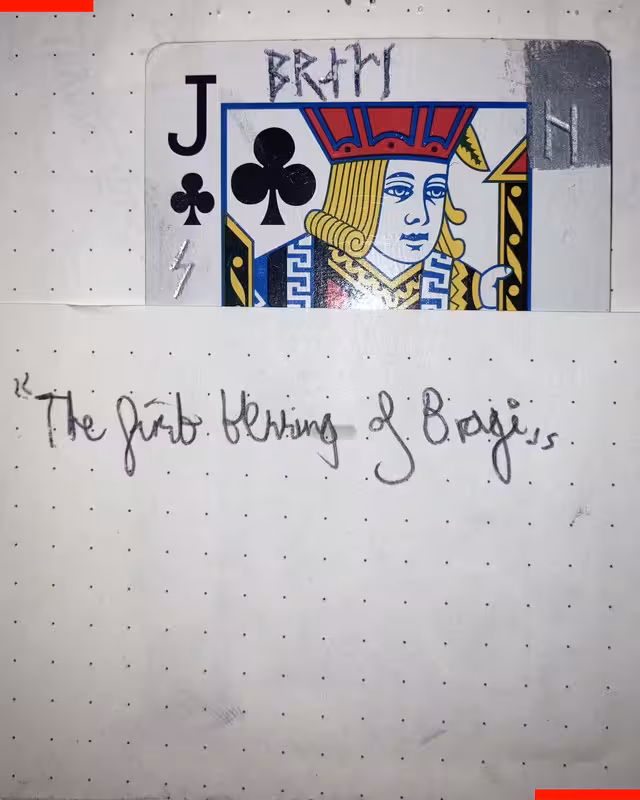 ᛒᚱᛅᚴᛁ
J
ᚺ
ᛋ
"The first blessing of Bragi"